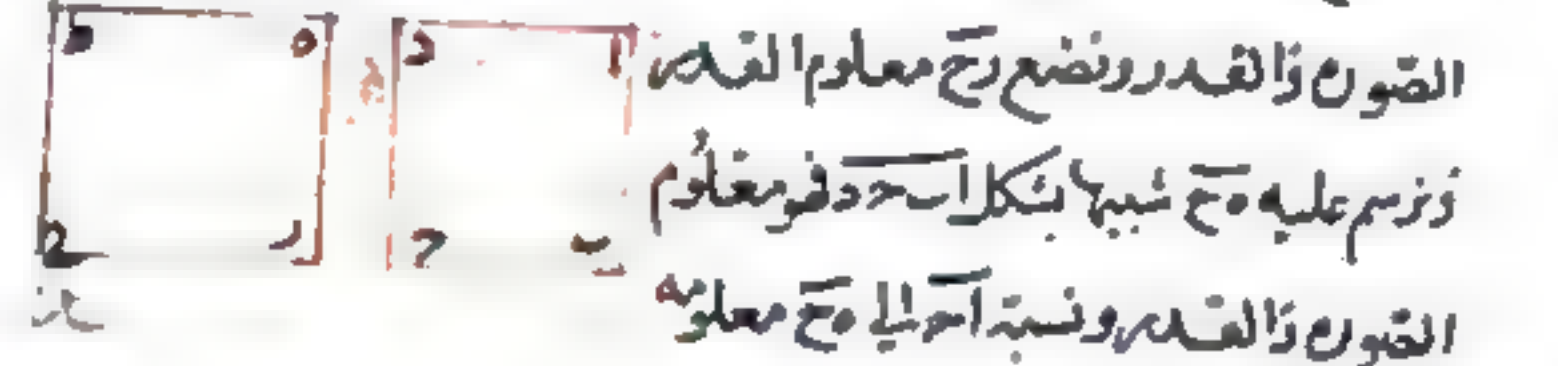 الصورة والقدر ونضع رح معلوم القدر
ونرسم عليه هح شبيها بشكل ابحد فهو معلوم
الصورة والقدر ونسبة اح الى هح معلومة
د ا
ه
ر
ح ب